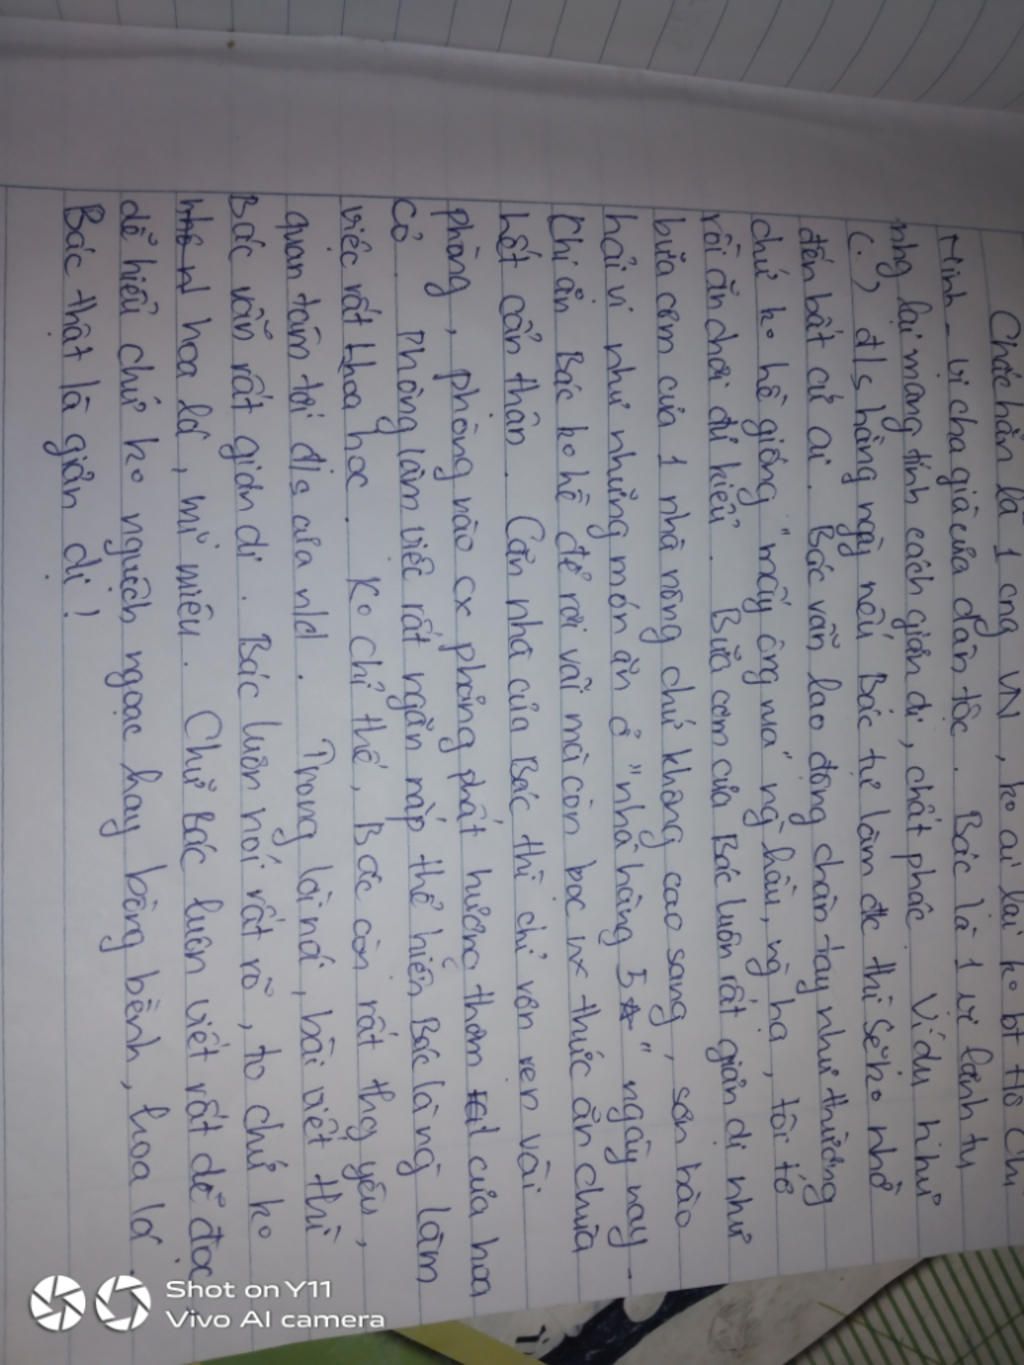 Chắc hẳn là 1 cng VN, ko ai lại ko bt Hồ Chí
Minh - vị cha già của dân tộc. Bác là 1 vị lãnh tụ
nhg lại mang tính cách giản dị, chất phác. Ví dụ như
(.) đ/s hằng ngày nếu Bác tự làm đc thì sẽ ko nhờ
đến bất cứ ai. Bác vẫn lao động chân tay như thường
chứ ko hề giống "mấy ông vua" ng hầu, ng hạ, tôi tớ
rồi ăn chơi đủ kiểu. Bữa cơm của Bác luôn rất giản dị như
bữa cơm của 1 nhà nông chứ không cao sang, sơn hào
hải vị như những món ăn ở "nhà hàng 5 ★" ngày nay.
Khi ăn Bác ko hề để rơi vãi mà còn bọc nx thức ăn chưa
hết cẩn thận. Căn nhà của Bác thì chỉ vỏn vẹn vài
phòng, phòng nào cx phảng phất hương thơm của hoa
cỏ. Phòng làm việc rất ngăn nắp thể hiện Bác là ng làm
việc rất khoa học. Ko chỉ thế, Bác còn rất thg yêu,
quan tâm tới đ/s của nld. Trong lời nói, bài viết thì
Bác vẫn rất giản dị. Bác luôn nói rất rõ, to chứ ko
hoa lá, mĩ miều. Chữ Bác luôn viết rất dễ đọc,
dễ hiểu chứ ko nguệch ngoạc hay bồng bềnh, hoa lá.
Bác thật là giản dị!
Shot on Y11
Vivo AI camera